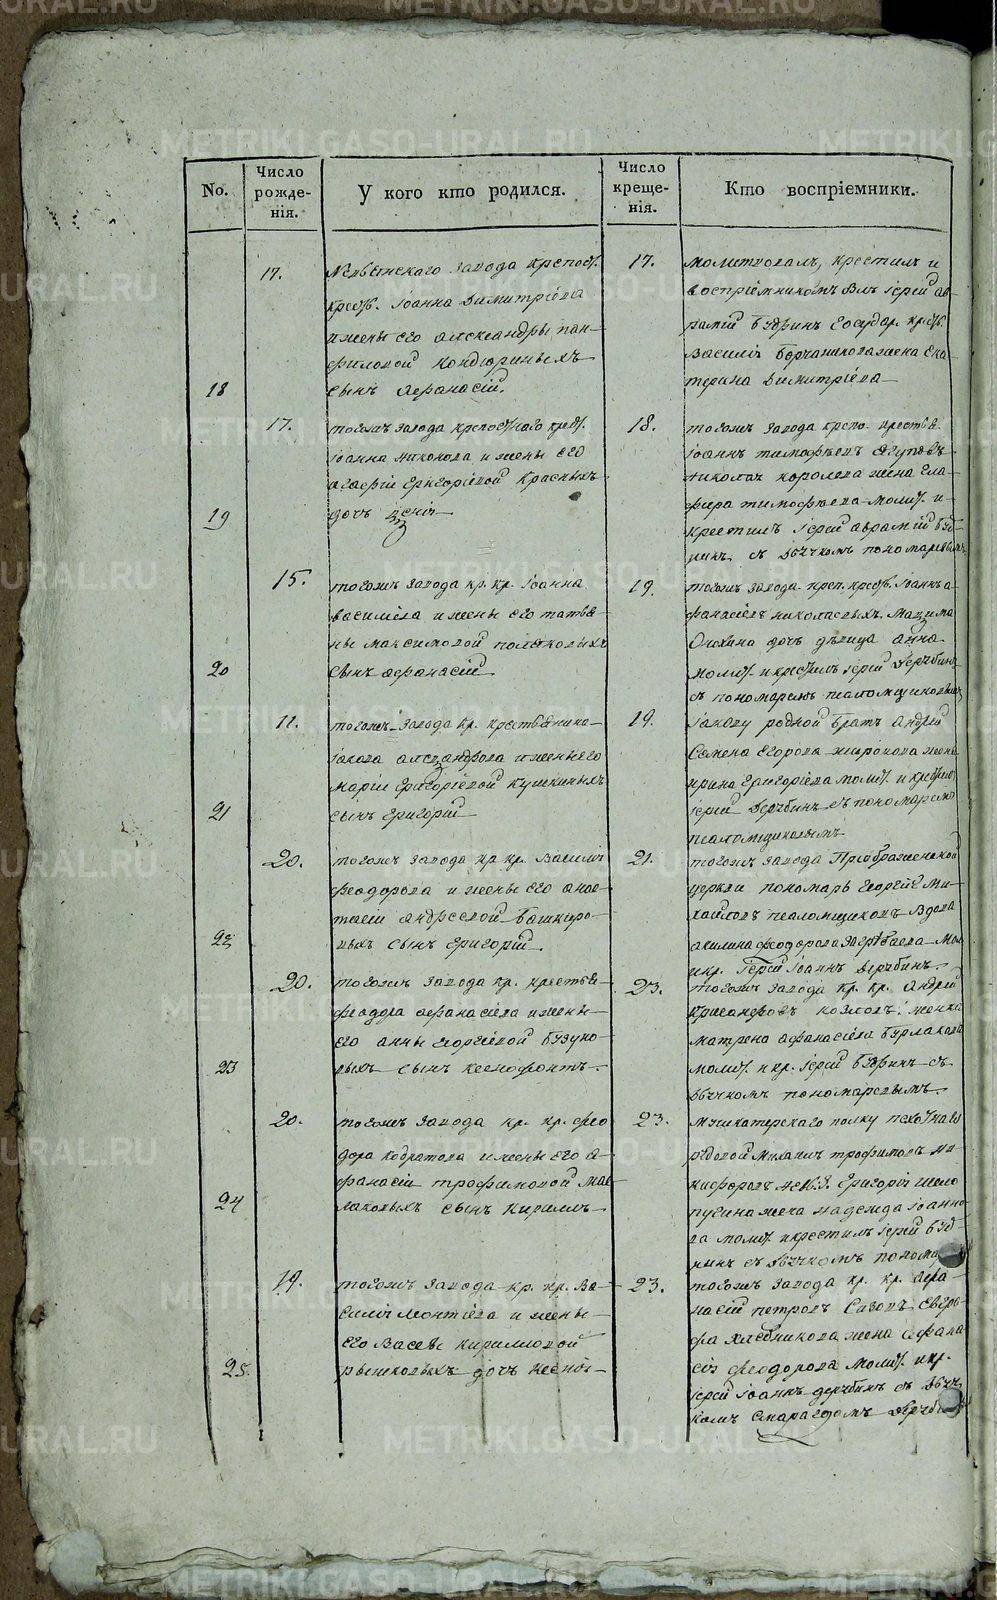 No.
Число рожде-нія.
У кого кто родился.
Число креще-нія.
Кто воспріемники.
18
17.
Невьянскаго завода крепост.
крест. Іоанна Димитріева
и жены его Александры пан-
филовой Кондюриныхъ
сынъ Афанасій.
17.
молитвовалъ, крестилъ и
воспріемникомъ былъ Іерей Ав-
рамій Будринъ Государ. крест.
Василія жена Ека-
терина Димитріева
19
17.
тогожъ завода крепостнаго крест.
Іоанна Никонова и жены его
Агафіи Григоріевой Красныхъ
дочь Ксенія
18.
тогожъ завода крепо. крестья.
Іоаннъ тимофеевъ
Николая королева жена Гла-
фира тимофеева молит. и
крестилъ Іерей Аврамій Буд-
ринъ съ дьячкомъ пономаревымъ
20
15.
тогожъ завода кр. кр. Іоанна
василіева и жены его татья-
ны максимовой полетковыхъ
сынъ Афанасій
19.
тогожъ завода креп. крест. Іоаннъ А-
фанасіевъ Максима
дочь девица анна
молит. и крестилъ Іерей Дерябинъ
съ пономаремъ псаломщиковымъ
21
11.
тогожъ завода кр. крестьянина
Іакова александрова и жены его
маріи григоріевой кушкиныхъ
сынъ Григорій
19.
Іакову родной братъ Андрей
Семена Егорова широкова жена
ирина Григоріева молит. и крестил
Іерей Дерябинъ съ пономаремъ
псаломщиковымъ
22
20.
тогожъ завода кр кр. Василія
феодорова и жены его анас-
тасіи андреевой Башкиро-
выхъ сынъ Григорій
21.
тогожъ завода Преображенской
церкви пономарь Георгій Ми-
хайловъ псаломщиковъ вдова
акилина феодорова Загребаева мол.
и кр. Іерей Іоаннъ Дерябинъ
23
20.
тогожъ завода кр. крестья.
феодора афанасіева и жены
его анны георгіевой Бузуно-
выхъ сынъ Ксенофонтъ
23.
тогожъ завода кр. кр. Андрей
козловъ; женка
матрена афанасіева Бурлакова
молит. и кр. Іерей Будринъ съ
дьячкомъ пономаревымъ
24
20.
тогожъ завода кр. кр. фео
дора кодратова и жены его А-
фанасіи трофимовой Мас-
лаковыхъ сынъ Кириллъ
23.
Мушкатерскаго полку пехотнаго
рядовой Михаилъ трофимовъ ни-
кифоровъ Григорія шело
пугина жена надежда Іоанно-
ва молит. и крестилъ Іерей Буд-
ринъ съ дьячкомъ
25
19.
тогожъ завода кр. кр. Ва-
силія Леонтіева и жены
его Васеы кирилловой
рышковыхъ дочь Ксенія
23.
тогожъ завода кр. кр. Афа-
насій петровъ Сизовъ Евгра-
фа хлебникова жена Афана-
сія феодорова молит. и кр.
Іерей Іоаннъ дерябинъ съ дьяч
комъ Смарагдомъ Дерябин